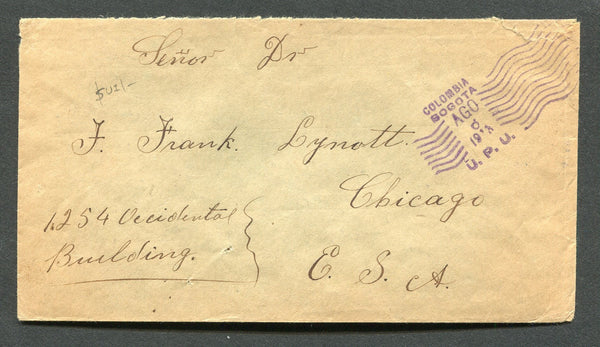 Señor Dr
F. Frank. Lynott.
Chicago
1.254 Occidental
Building.
E. S. A.
COLOMBIA
BOGOTA
AGO
U. P. U.